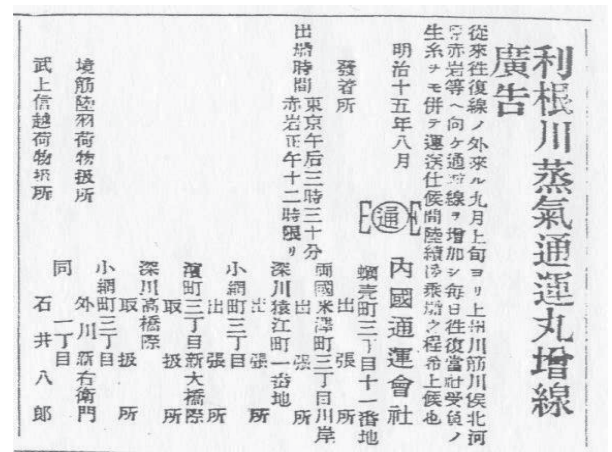 利根川蒸氣通運丸增線
廣告
從來往復線ノ外來ル九月上旬ヨリ上州川筋川俣北河
岸赤岩等ヘ向ケ通船線ヲ增加シ每日往復當社受負ノ
生糸ヲモ併テ運送仕候間陸續御乘船之程希上候也
明治十五年八月
通
內國通運會社
發着所
蠣壳町三丁目十一番地
出張所
出船時間
東京午后三時三十分
赤岩正午十二時限リ
両國米澤町三丁目川岸
出張所
深川猿江町一番地
出張所
小網町三丁目
出張所
濵町三丁目新大橋際
取扱所
深川高橋際
取扱所
境筋陸羽荷物扱所
小網町三丁目
外川新右衛門
武上信越荷物扱所
同 一丁目
石井八郎